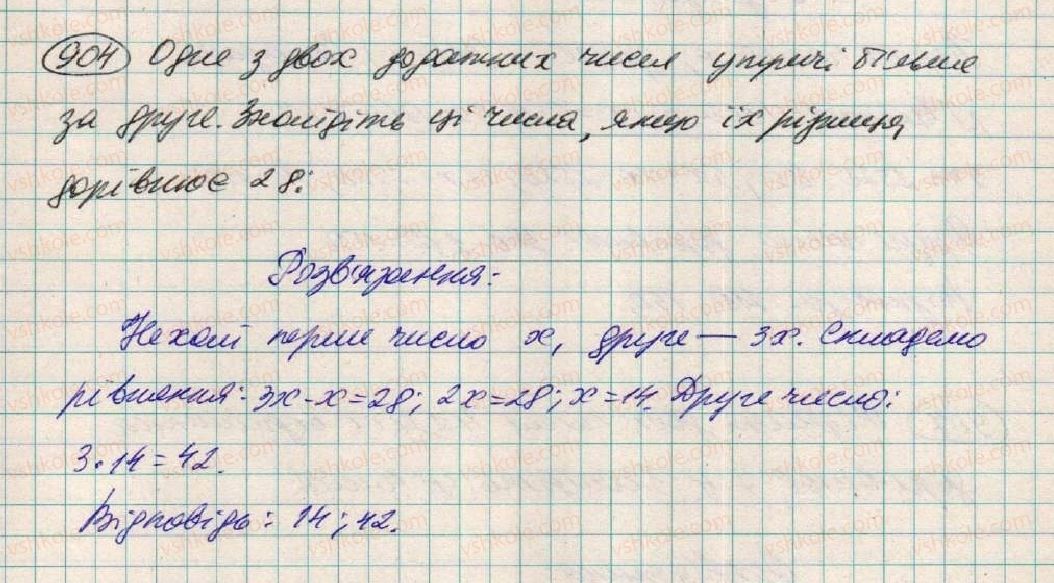 904 Одне з двох додатних чисел утричі більше
за друге. Знайдіть ці числа, якщо їх різниця
дорівнює 28.
Розв'язання:
Нехай перше число x, друге — 3x. Складемо
рівняння: 3x-x=28; 2x=28; x=14. Друге число:
3•14=42.
Відповідь: 14; 42.